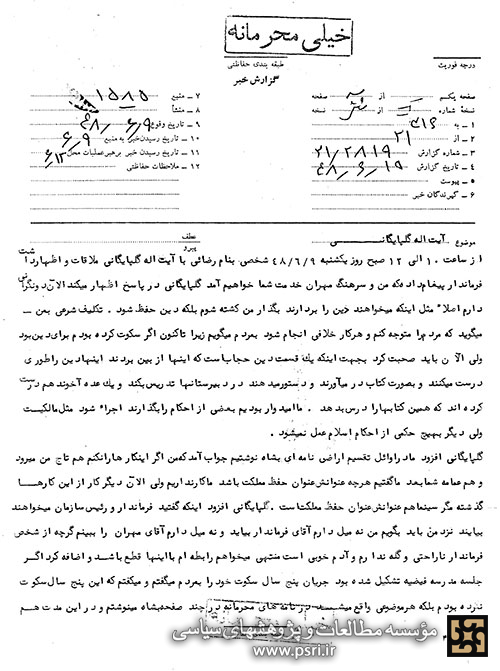 خیلی محرمانه
درجه فوریت
طبقه بندی حفاظتی
گزارش خبر
صفحه یکم از صفحه
نسخه شماره از نسخه
۱ – به ۳۱۶
۲ – از ۲۱
۳ – شماره گزارش ۲۱/۲۸۱۹
۴ – تاریخ گزارش ۴۸/۶/۱۹
۵ – پیوست
۶ – گیرندگان خبر
۷ – منبع ۱۵۸۵
۸ – منشأ
۹ – تاریخ وقوع ۴۸/۶/۹
۱۰ – تاریخ رسیدن خبر به منبع ۶/۹
۱۱ – تاریخ رسیدن خبر برهبر عملیات محل ۶/۱۳
۱۲ – ملاحظات حفاظتی
موضوع آیت اله گلپایگانی
عطف
پیرو
از ساعت ۱۰ الی ۱۲ صبح روز یکشنبه ۴۸/۶/۹ شخصی بنام رضائی با آیت اله گلپایگانی ملاقات و اظهار داشت
فرماندار پیغام داده که من و سرهنگ مهران خدمت شما خواهیم آمد گلپایگانی در پاسخ اظهار میکند الان دو نگرانی
دارم اصلا مثل اینکه میخواهند دین را بردارند بگذار من کشته شوم بلکه دین حفظ شود . تکلیف شرعی بمن –
میگوید که مردم را متوجه کنم و هر کار خلافی انجام شود بمردم میگویم زیرا تاکنون اگر سکوت کرده بودم برای دین بود
ولی الان باید صحبت کرد بجهت اینکه یک قسمت دین حجاب است که اینها از بین بردند اینها دین را طوری
درست میکنند و بصورت کتاب در میآورند و دستور میدهند در دبیرستانها تدریس بکند و یک عده آخوند هم درست
کرده اند که همین کتابها را درس بدهد . ما امیدوار بودیم بعضی از احکام را بگذارند اجراء شود مثل مالکیت
ولی دیگر بهیچ حکمی از احکام اسلام عمل نمیشود .
گلپایگانی افزود ما در اوائل تقسیم اراضی نامه ای بشاه نوشتیم جواب آمد که من اگر اینکار ها را نکنم هم تاج من میرود
و هم عمامه شما بعد ما گفتیم هرچه عنوانش عنوان حفظ مملکت باشد ما کار نداریم ولی الان دیگر کار از این کارها
گذشته مگر سینما هم عنوانش عنوان حفظ مملکت است . گلپایگانی افزود اینکه گفتید فرماندار و رئیس سازمان میخواهند
بیایند نزد من باید بگویم من نه میل دارم آقای فرماندار بیاید و نه میل دارم آقای مهران را ببینم گرچه از شخص
فرماندار ناراحتی و گله ندارم و آدم خوبی است منتهی میخواهم رابطه ام با اینها قطع باشد و اضافه کرد اگر
جلسه مدرسه فیضیه تشکیل شده بود جریان پنج سال سکوت خود را بمردم میگفتم و میگفتم که این پنج سال سکوت
نکرده بودم بلکه هر موضوعی واقع میشد در نامه های محرمانه در چند صفحه بشاه مینوشتم و در این مدت هم
مؤسسه مطالعات و پژوهشهای سیاسی
www.psri.ir